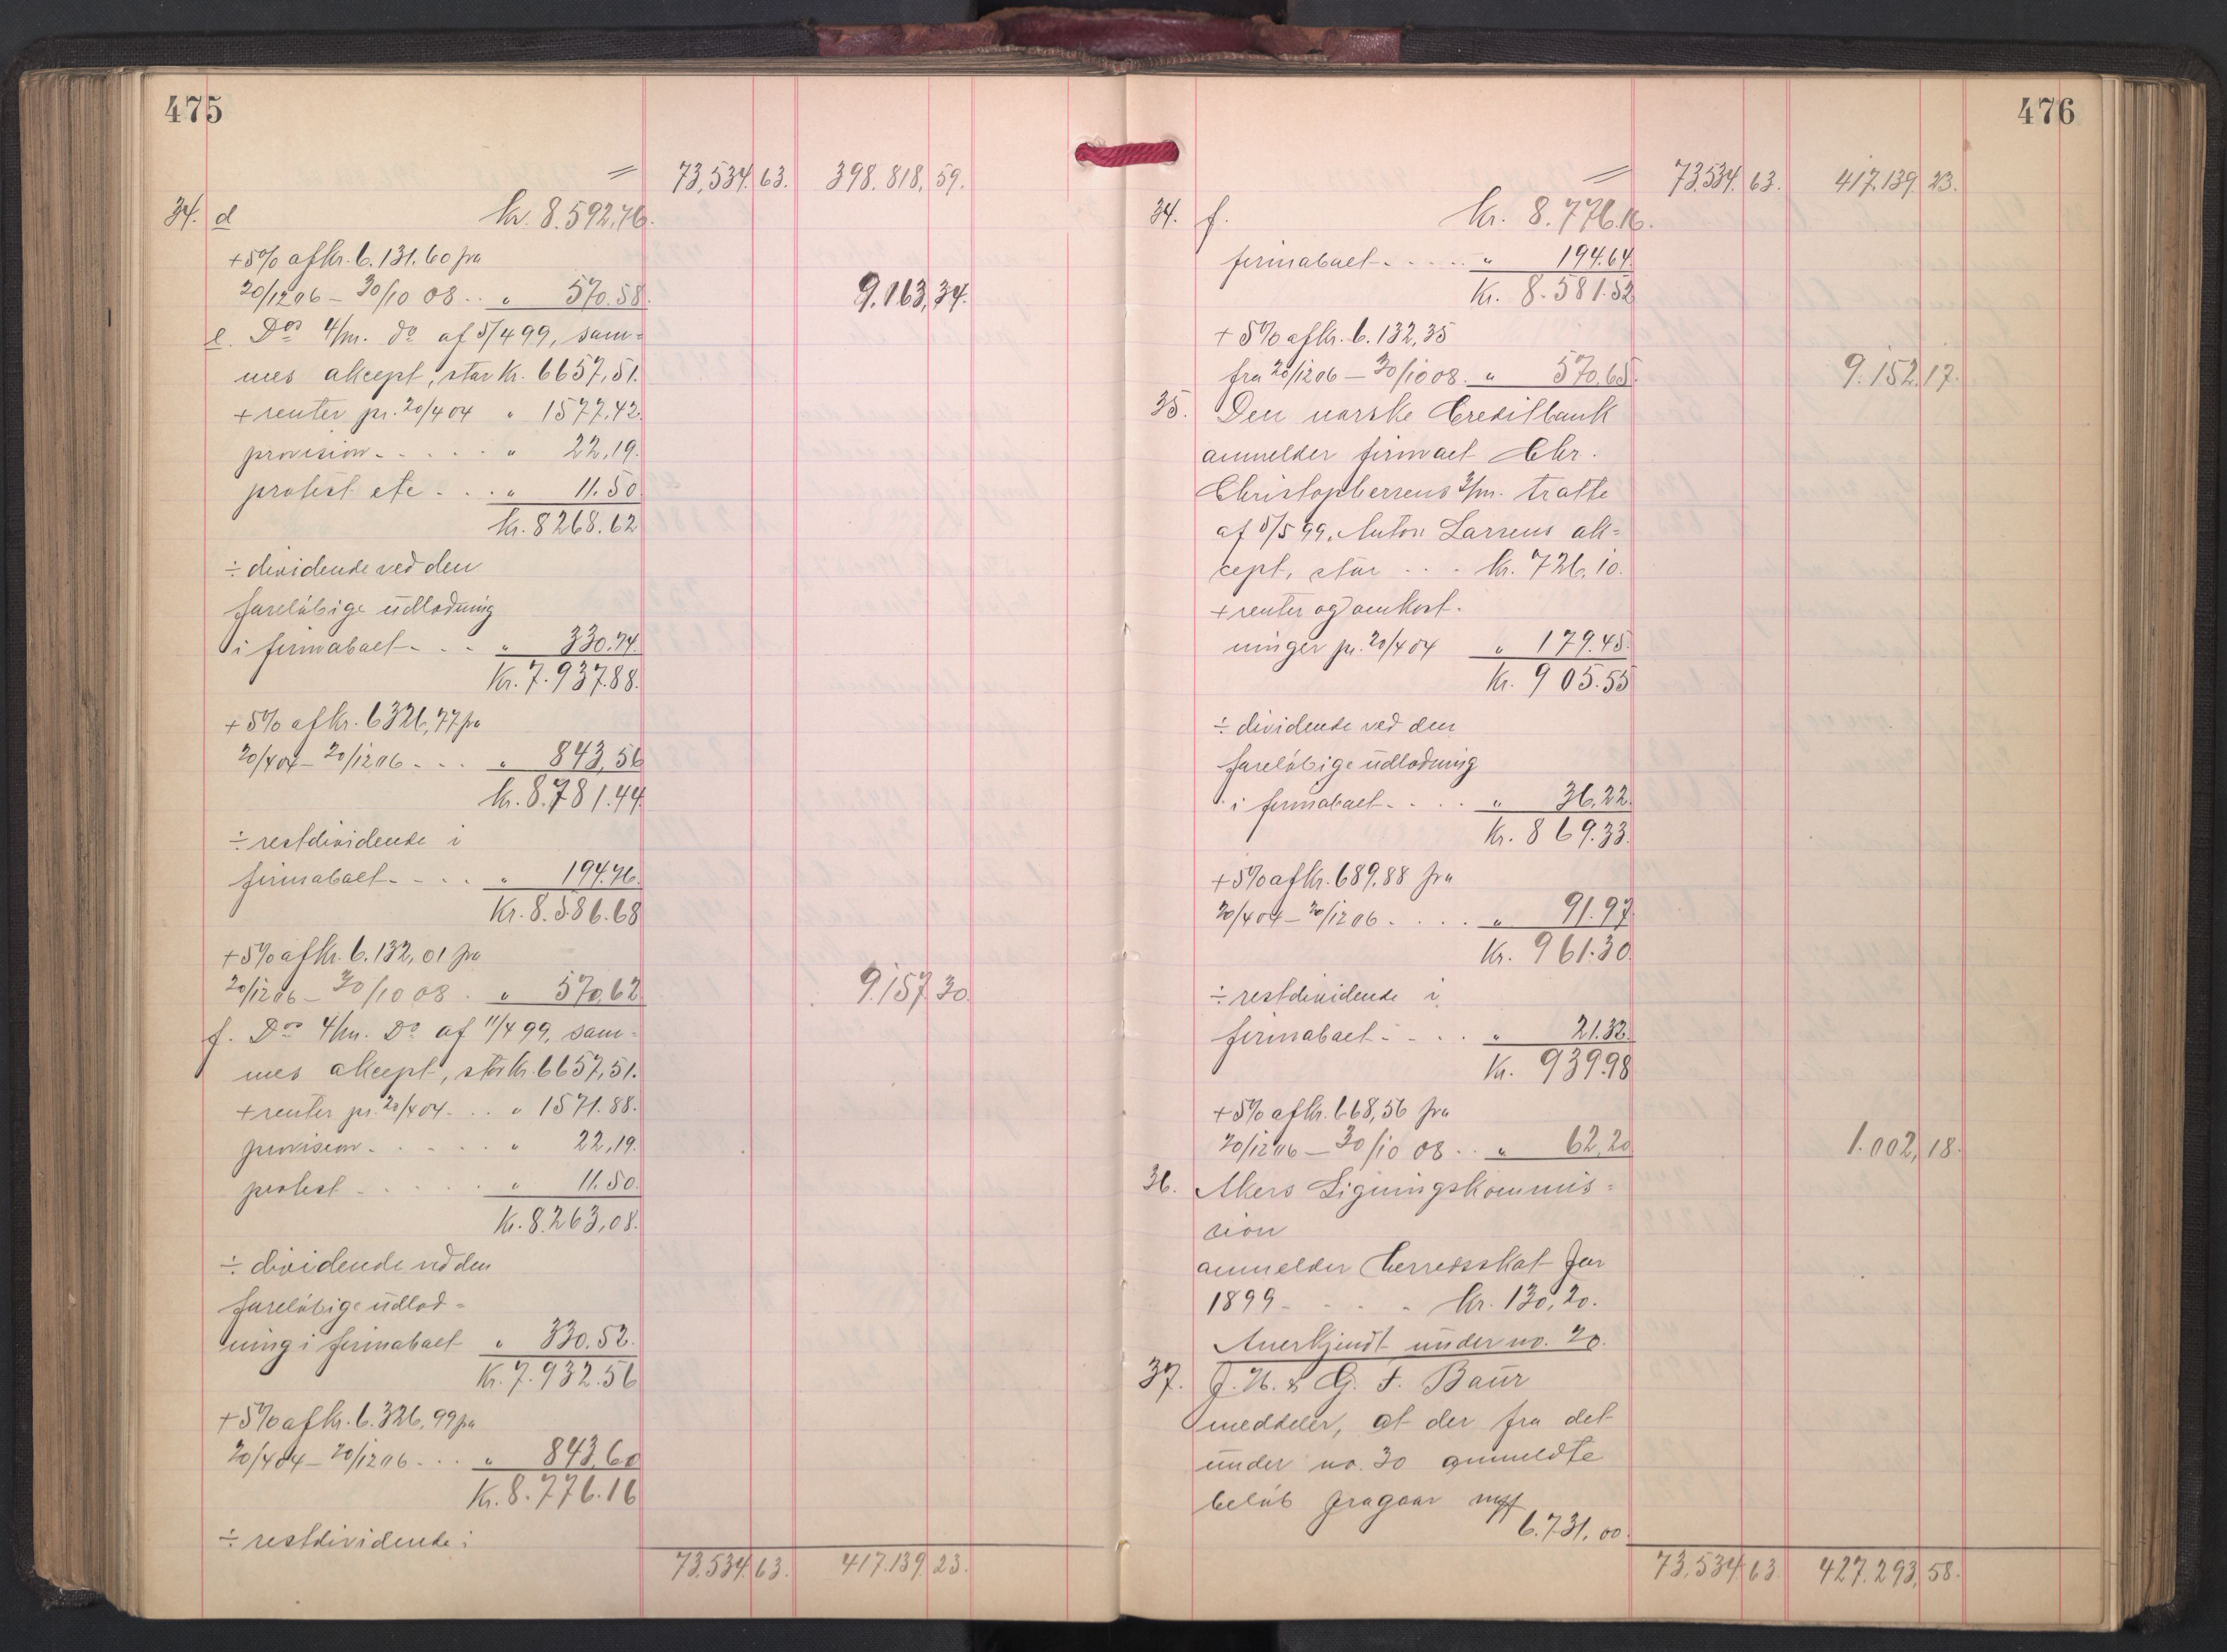 475
= 73,534.63. 398.818,59.
34. d kr. 8.592,76.
+5% af kr. 6.131.60 fra
20/12 06 – 30/10 08 . . „ 570.58. 9.163,34.
e. Dos 4/m. do af 5/4 99, sam=
mes akcept, stor kr. 6657,51.
+ renter pr. 20/4 04 „ 1577,42.
provision - . . . . „ 22,19.
protest etc . . . „ 11.50.
kr. 8268.62
÷ dividende ved den
foreløbige udlodning
i firmaboet - . . „ 330.74.
Kr. 7.937.88.
+5% af kr. 6326,77 fra
20/4 04 – 20/12 06 . . . „ 843,56
kr. 8.781.44
÷ restdividende i
firmaboet - . . . „ 194.76.
Kr. 8.586.68
+5% af kr. 6.132,01 fra
20/12 06 – 30/10 08 . „ 570,62 9.157.30.
f. Dos 4/m. Do af 11/4 99, sam=
mes akcept, stor kr. 6657,51.
+ renter pr. 20/4 04 . . „ 1571.88.
provision - . . . . „ 22,19.
protest - . . . . „ 11.50.
Kr. 8.263,08.
÷ dividende ved den
foreløbige udlod=
ning i firmaboet „ 330.52.
Kr. 7.932.56
+5% af kr. 6.326,99 fra
20/4 04 – 20/12 06 . . . „ 843,60
Kr. 8.776.16
÷ restdividende i
73,534.63. 417.139.23.
476
= 73,534.63. 417.139.23.
34. f. kr. 8.776.16.
firmaboet - . . . . „ 194.64.
Kr. 8.581.52
+5% af kr. 6.132,35
fra 20/12 06 – 30/10 08. „ 570,65. 9.152,17.
35. Den norske Creditbank
anmelder firmaet Chr.
Christophersens 3/m. tratte
af 5/5 99, Anton Larsens ak=
cept, stor . . . kr. 726,10.
+ renter og omkost-
ninger pr. 20/4 04 „ 179.45.
Kr. 905.55
÷ dividende ved den
foreløbige udlodning
i firmaboet - . . . „ 36,22.
Kr. 869.33.
+5% af kr. 689.88 fra
20/4 04 – 20/12 06 . . . . „ 91.97
Kr. 961.30.
÷ restdividende i
firmaboet - - . . „ 21.32.
Kr. 939.98
+5% af kr. 668,56 fra
20/12 06 – 30/10 08 . . „ 62,20 1.002,18.
36. Akers Ligningskommis=
sion
anmelder herredsskat for
1899 - . . . kr. 130,20.
Anerkjendt under no. 20.
37. J. H. & G. F. Baur
meddeler, at der fra det
under no. 30 anmeldte
beløb fragaar mff
6.731,00.
73,534.63. 427.293,58.